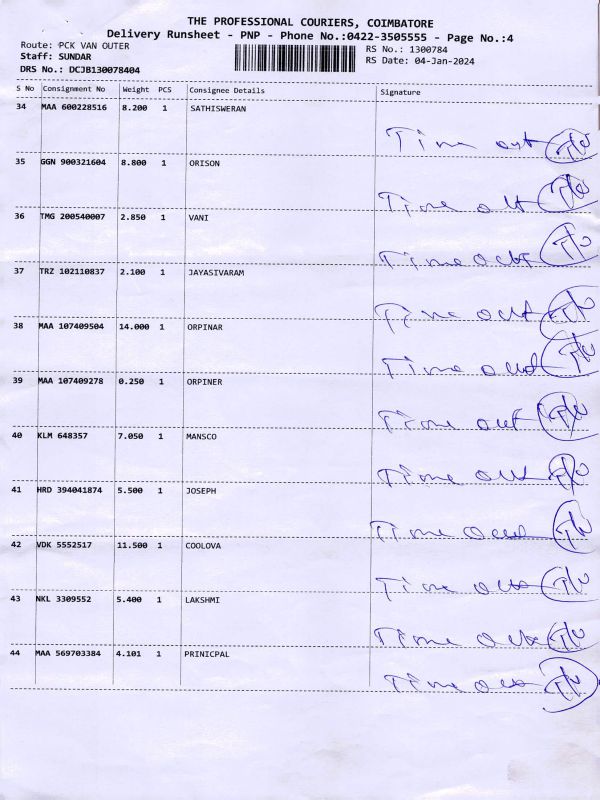 THE PROFESSIONAL COURIERS, COIMBATORE
Delivery Runsheet - PNP - Phone No.:0422-3505555 - Page No.:4
Route: PCK VAN OUTER RS No.: 1300784
Staff: SUNDAR RS Date: 04-Jan-2024
DRS No.: DCJB130078404
S No Consignment No Weight PCS Consignee Details Signature
34 MAA 600228516 8.200 1 SATHISWERAN
Time out
35 GGN 900321604 8.800 1 ORISON
Time out
36 TMG 200540007 2.850 1 VANI
Time out
37 TRZ 102110837 2.100 1 JAYASIVARAM
Time out
38 MAA 107409504 14.000 1 ORPINAR
Time out
39 MAA 107409278 0.250 1 ORPINER
Time out
40 KLM 648357 7.050 1 MANSCO
Time out
41 HRD 394041874 5.500 1 JOSEPH
Time out
42 VDK 5552517 11.500 1 COOLOVA
Time out
43 NKL 3309552 5.400 1 LAKSHMI
Time out
44 MAA 569703384 4.101 1 PRINICPAL
Time out